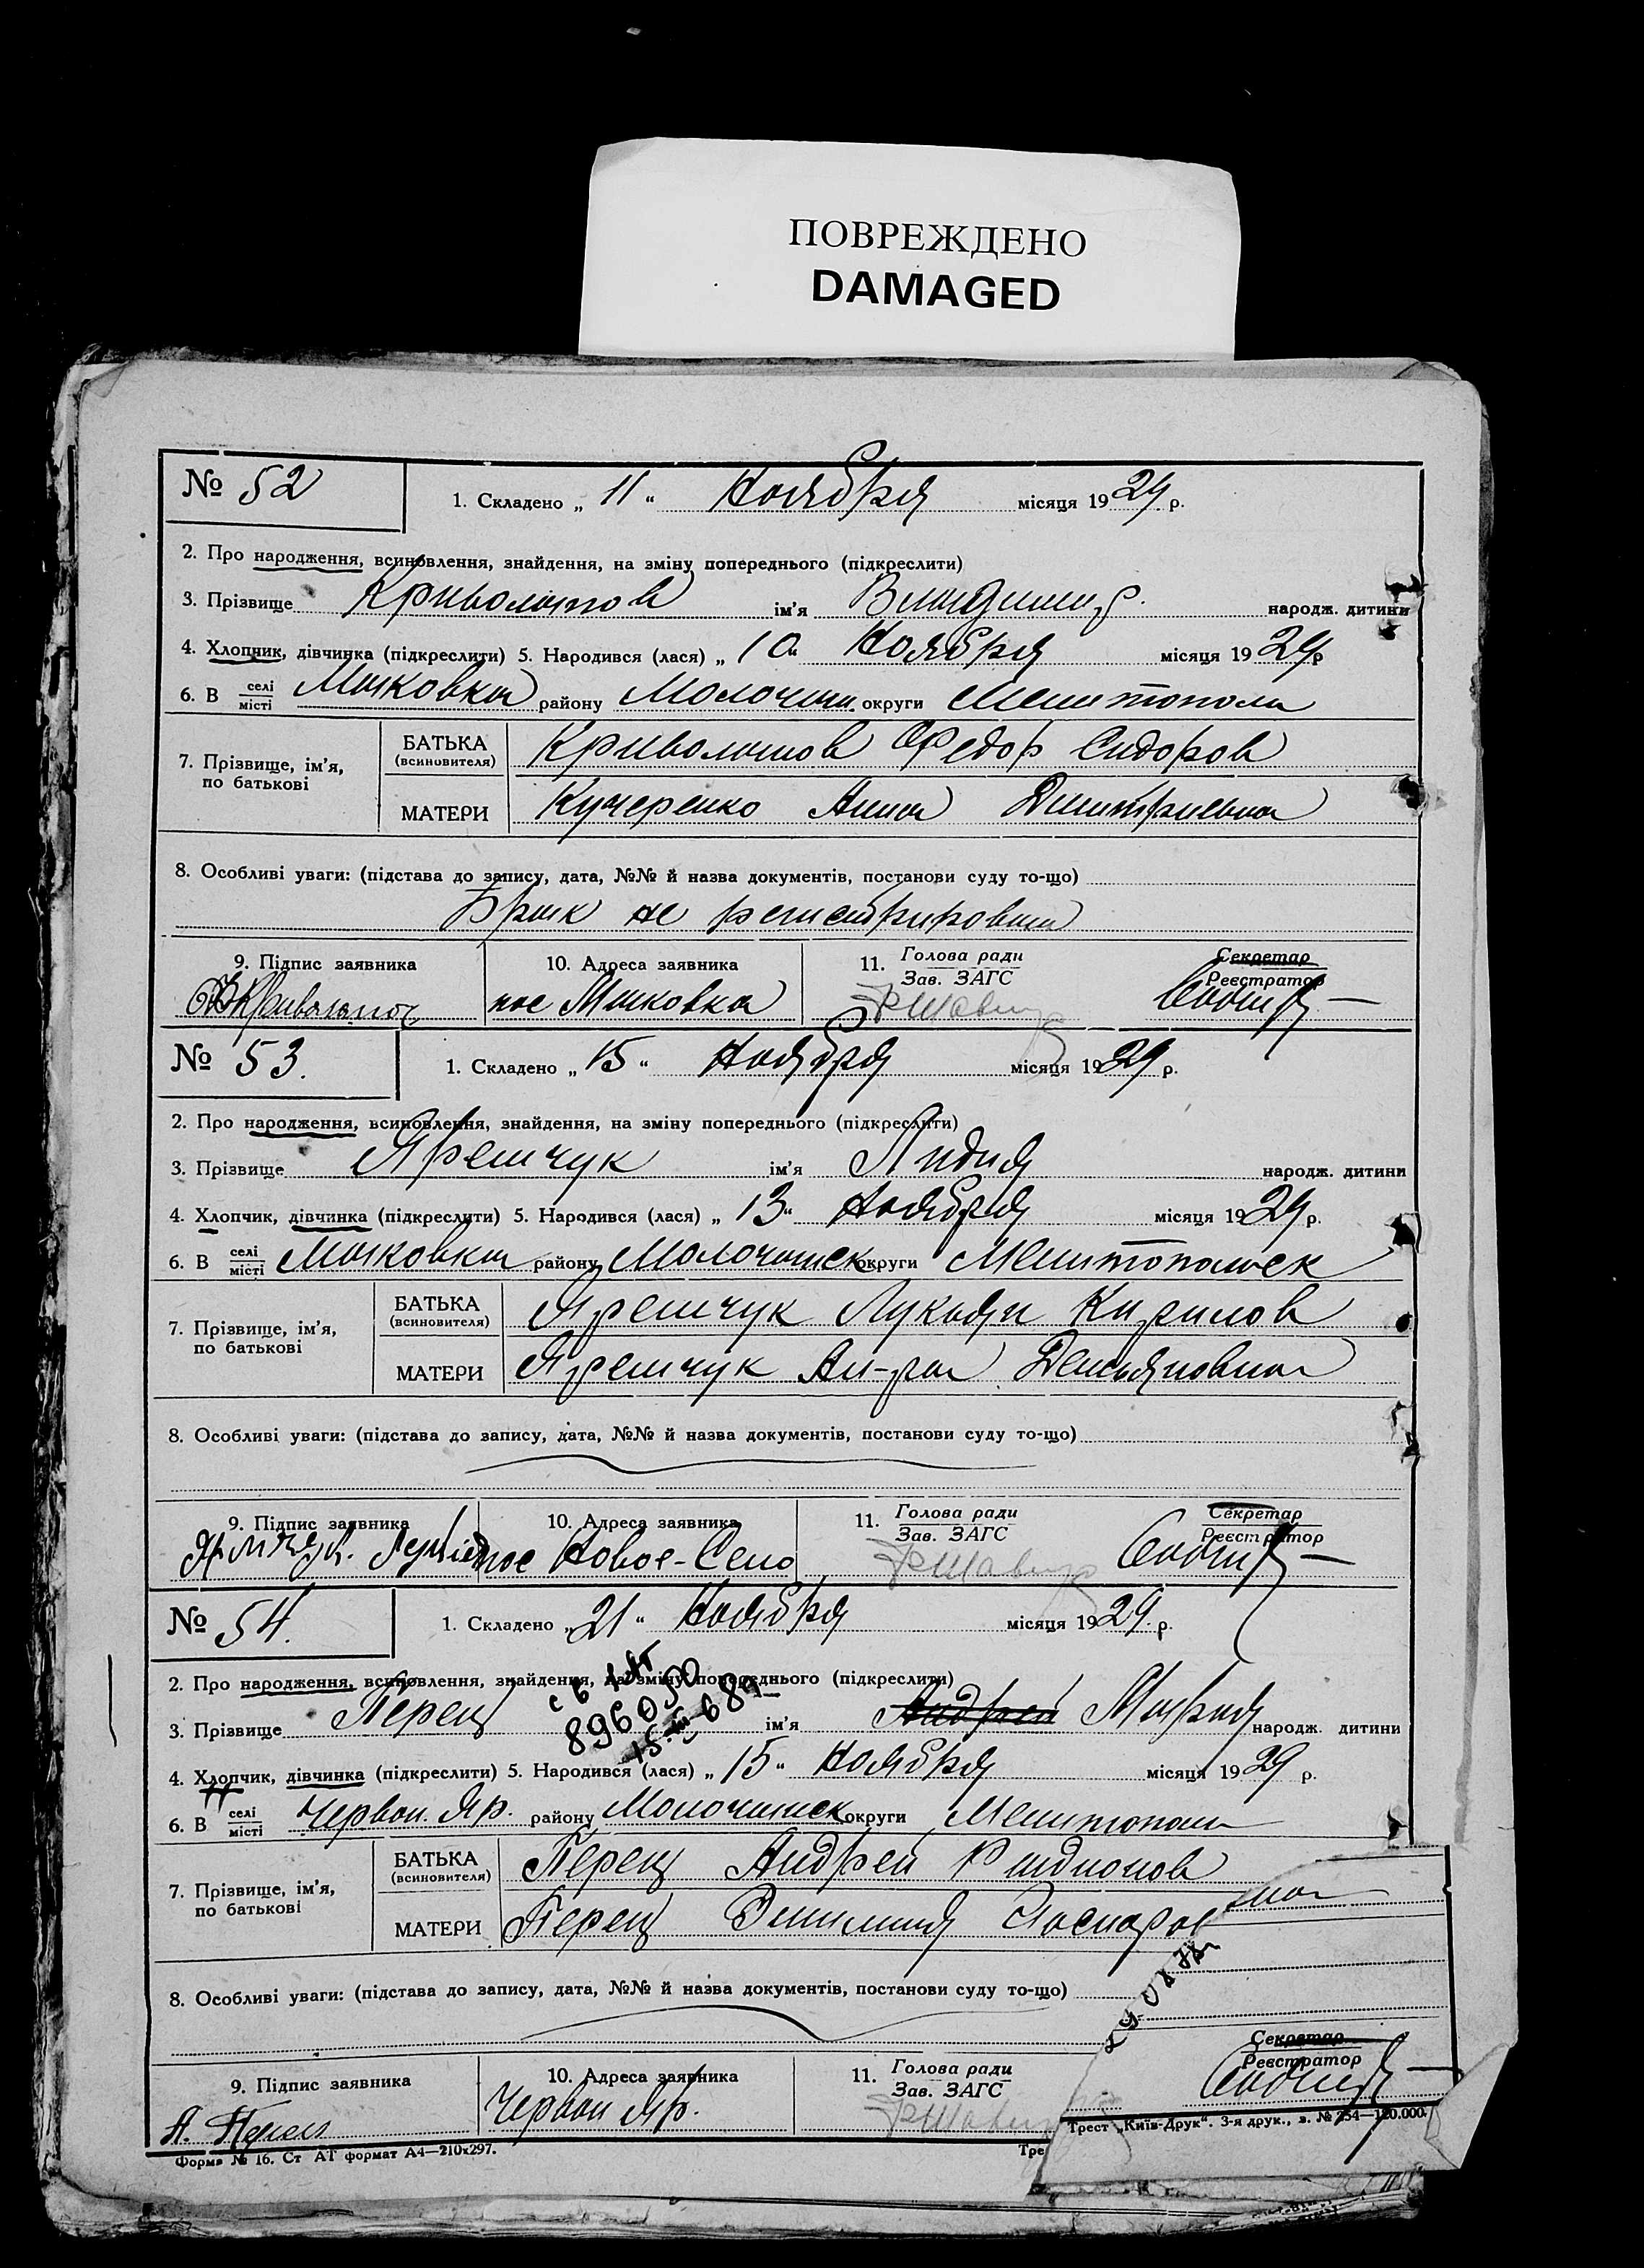 ПОВРЕЖДЕНО
DAMAGED
№ 52
1. Складено „ 11 “ Ноября місяця 1929 р.
2. Про народження, всиновлення, знайдення, на зміну попереднього (підкреслити)
3. Прізвище Криволапов ім'я Владимир народж. дитини
4. Хлопчик, дівчинка (підкреслити) 5. Народився (лася) „ 10 “ Ноября місяця 1929 р
6. В селі місті району Молочан. округи Мелитопол
7. Прізвище, ім'я, по батькові
БАТЬКА (всиновителя) Криволапов Федор Сидоров
МАТЕРИ Кучеренко Анна Дмитриевна
8. Особливі уваги: (підстава до запису, дата, №№ й назва документів, постанови суду то-що)
Брак не регистрирован
9. Підпис заявника
10. Адреса заявника
11. Голова ради Зав. ЗАГС
Секретар Реєстратор
№ 53.
1. Складено „ 15 “ Ноября місяця 1929 р.
2. Про народження, всиновлення, знайдення, на зміну попереднього (підкреслити)
3. Прізвище Яремчук ім'я Лидия народж. дитини
4. Хлопчик, дівчинка (підкреслити) 5. Народився (лася) „ 13 “ Ноября місяця 1929 р.
6. В селі місті району Молочанск округи Мелитопольск
7. Прізвище, ім'я, по батькові
БАТЬКА (всиновителя) Яремчук Лукьян Кирилов
МАТЕРИ Яремчук Ал-ра Демьяновна
8. Особливі уваги: (підстава до запису, дата, №№ й назва документів, постанови суду то-що)
9. Підпис заявника
10. Адреса заявника
11. Голова ради Зав. ЗАГС
Секретар Реєстратор
пос Новое-Село
№ 54.
1. Складено „ 21 “ Ноября місяця 1929. р.
2. Про народження, всиновлення, знайдення, на зміну попереднього (підкреслити)
3. Прізвище Перец ім'я Андрей Мария народж. дитини
4. Хлопчик, дівчинка (підкреслити) 5. Народився (лася) „ 15 “ Ноября місяця 1929 р.
6. В селі місті Червон. Яр. району Молочанск округи Мелитопол
7. Прізвище, ім'я, по батькові
БАТЬКА (всиновителя) Перец Андрей Родионов
МАТЕРИ Перец
8. Особливі уваги: (підстава до запису, дата, №№ й назва документів, постанови суду то-що)
9. Підпис заявника
10. Адреса заявника
11. Голова ради Зав. ЗАГС
Секретар Реєстратор
А. Перец
Червон Яр.
Форма № 16. Ст АТ формат А4—210х297.
Тре
Трест „Київ-Друк“. 3-я друк., з. № 254—120.000.